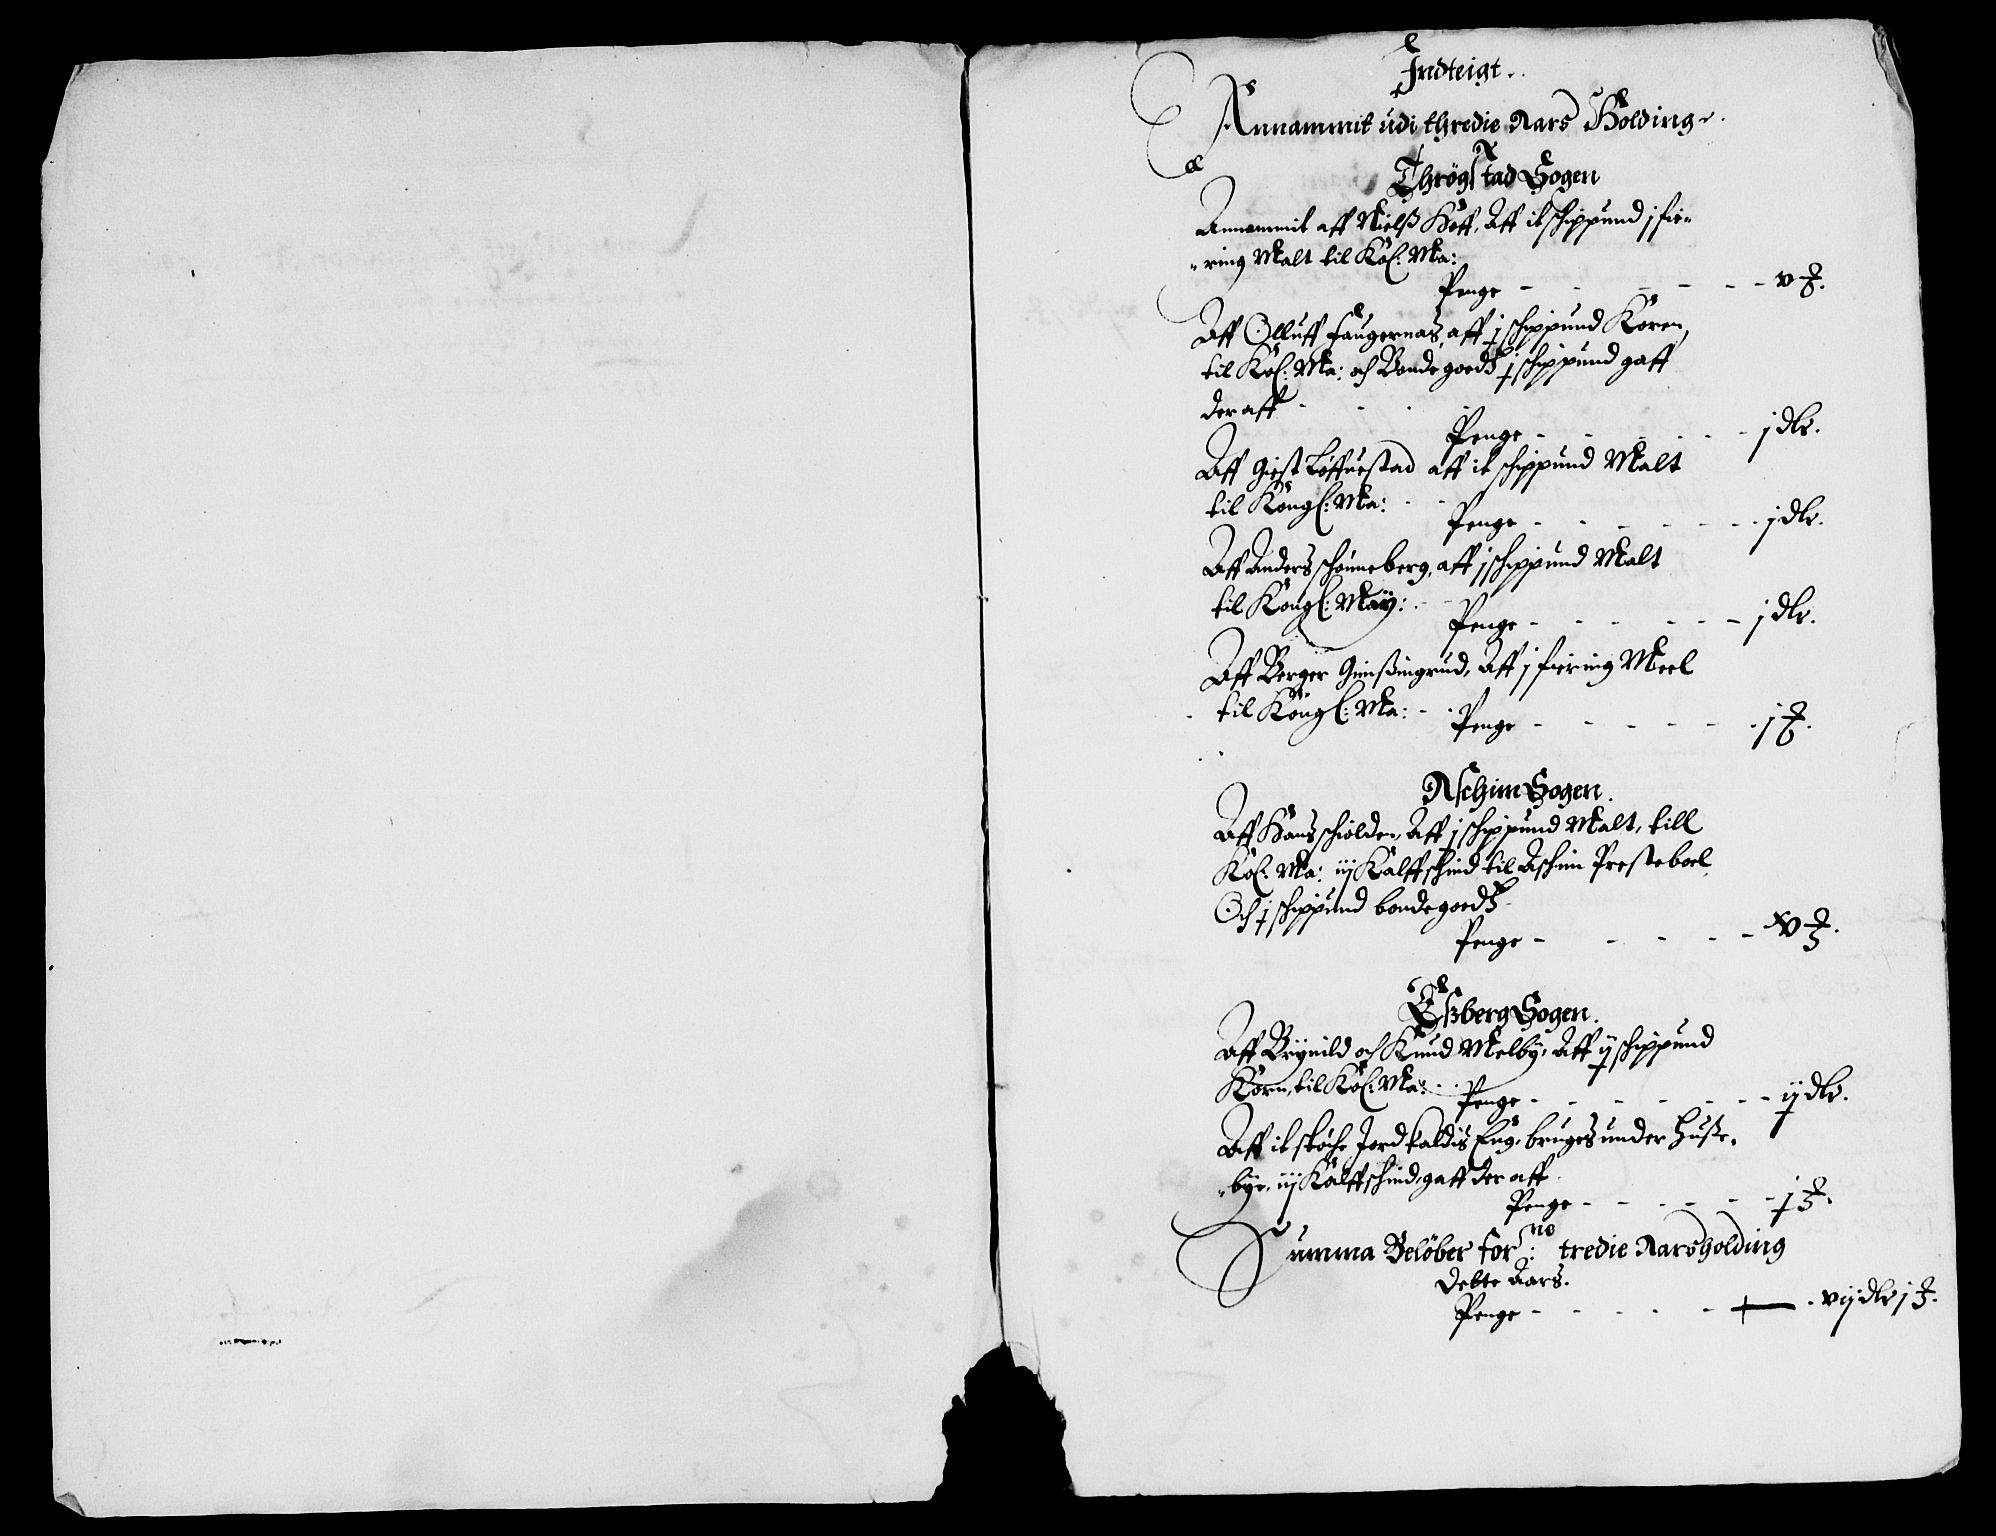 Indteigt.
Annammit udi thredie Aars Holding.
Thrøgstad Sogen
Annammit aff Nielß Hoff, Aff it schippund j fie-
-ring Malt til Ko: Ma:
Penge - - - - - - v
Aff Olluff faugernas, aff j schippund Koren,
til Ko: Ma: och Bonde goeds j schippund gaff
der aff - - -
Penge - - - - - j dlr.
Aff Giest Løffuestad aff it schippund Malt
til Kongl: Ma:
Penge - - - - - - j dlr.
Aff Anders schønneberg, aff j schippund Malt
til Kongl: May:
Penge - - - - - - j dlr.
Aff Berger Gimßingrud, Aff j fiering Meel
til Kongl: Ma:
Penge - - - - - - j
Aschim Sogen.
Aff Hans schiolden, Aff j schippund Malt, till
Ko: Ma: iij Kalffschind til Aschim Presteboel
Och j schippund bonde goeds
Penge - - - - - xv
Eßberg Sogen.
Aff Brynild och Knud Melby, Aff ij schippund
Korn, til Ko: Ma:
Penge - - - - - - ij dlr.
Aff it støche Jord kaldis Eng, bruges under Huße-
-bye, iij Kalffschind, gaff der aff
Penge - - - - - j
Summa Beløber for:ne tredie Aarsholding
dette Aars.
Penge - - - - - vij dlr j